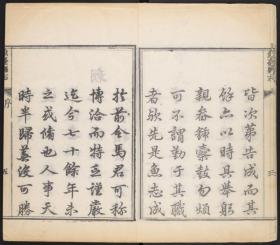 皆次第告成而其
餘亦以時具舉躬
親畚鍤橐鼓勿煩
可不謂勤于其職
者歟先是魚志成
於前令馬君可稱
博洽而特立謹嚴
迄今七十餘年未
之或脩也人事天
時半歸蕪沒可勝
序
五
三